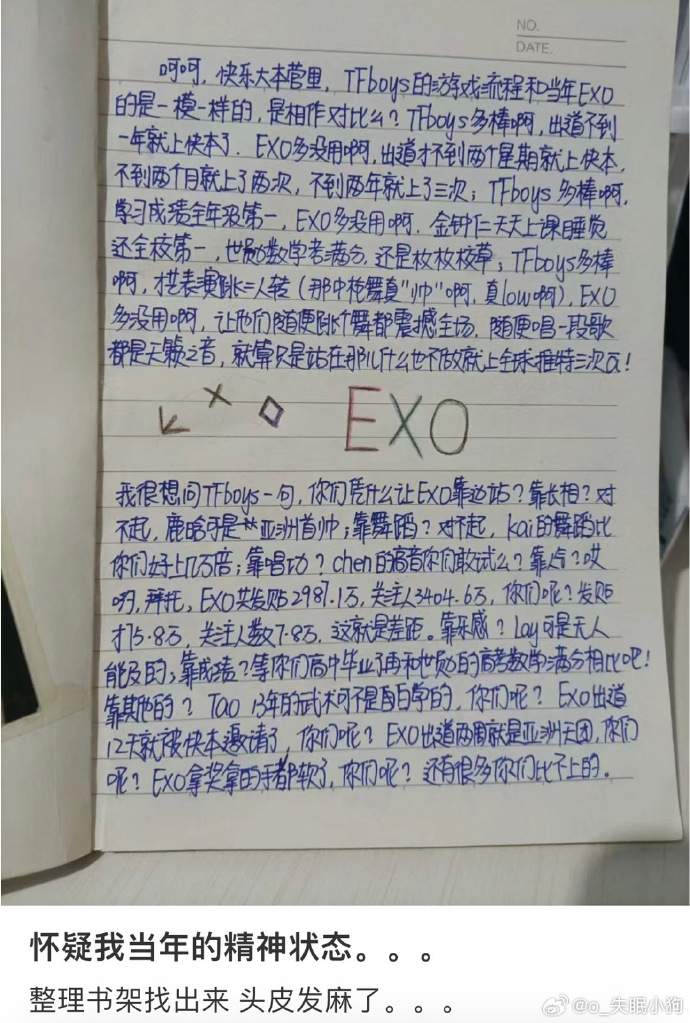 NO.
DATE.
呵呵，快乐大本营里，TFboys的游戏流程和当年EXO
的是一模一样的，是相作对比么？TFboys多棒啊，出道不到
一年就上快本了．EXO多没用啊，出道才不到两个星期就上快本，
不到两个月就上了两次，不到两年就上了三次；TFboys多棒啊，
学习成绩全年级第一，EXO多没用啊．金钟仁天天上课睡觉
还全校第一，世勋数学考满分，还是枚枚校草；TFboys多棒
啊，才艺表演跳二人转（那中枪舞真"帅"啊，真low啊），EXO
多没用啊，让他们随便跳个舞都震撼全场．随便唱一段歌
都是天籁之音，就算只是站在那儿什么也不做就上全球推特三次！
EXO
我很想问TFboys一句，你们凭什么让EXO靠边站？靠长相？对
不起，鹿晗可是**亚洲首帅；靠舞蹈？对不起，kai的舞蹈比
你们好上几万倍；靠唱功？chen的高音你们敢试么？靠人气？哎
哟，拜托，EXO共发贴2987.1万，关注人3404.6万，你们呢？发贴
才75.8万，关注人数7.8万，这就是差距。靠乐感？Lay可是无人
能及的；靠成绩？等你们高中毕业了再和世勋的高考数学满分相比吧！
靠其他的？Tao 13年的武术可不是白学的，你们呢？EXO出道
12天就被快本邀请了，你们呢？EXO出道两周就是亚洲天团，你们
呢？EXO拿奖拿的手都软了，你们呢？还有很多你们比不上的。
怀疑我当年的精神状态。。。
整理书架找出来 头皮发麻了。。。
@o_失眠小狗